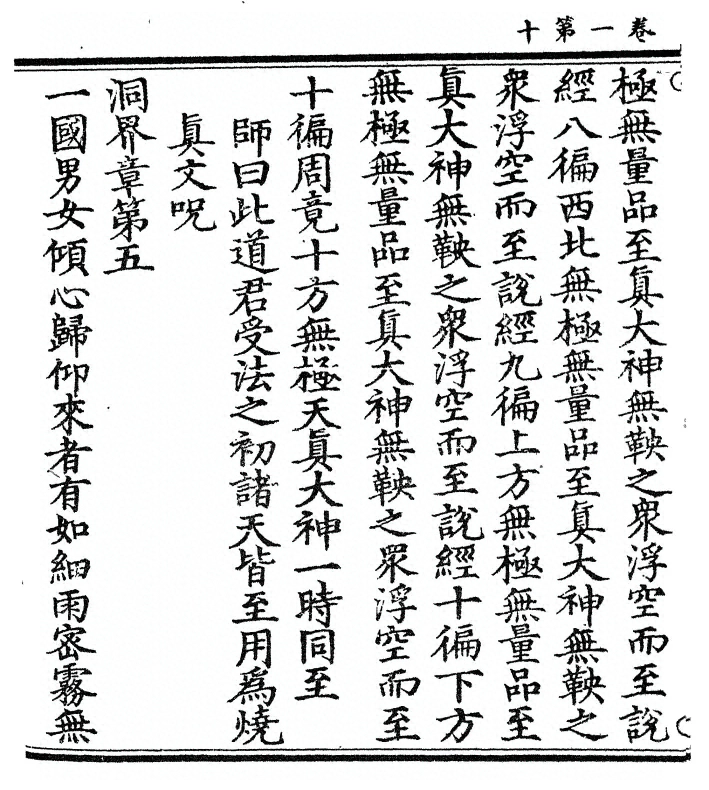 卷一第十
極無量品至眞大神無鞅之衆浮空而至說
經八徧西北無極無量品至眞大神無鞅之
衆浮空而至說經九徧上方無極無量品至
眞大神無鞅之衆浮空而至說經十徧下方
無極無量品至眞大神無鞅之眾浮空而至
十徧周竟十方無極天眞大神一時同至
師曰此道君受法之初諸天皆至用爲燒
眞文呪
洞界章第五
一國男女傾心歸仰來者有如細雨密霧無